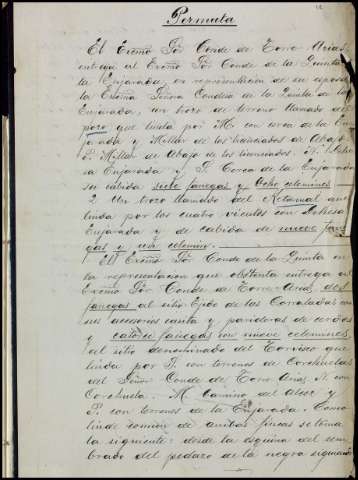 Permuta
El Excmo Sor Conde de Torre Arias
entrega al Excmo Sor Conde de la Quinta de
la Enjarada, en representacion de su esposa
la Excma Señora Condesa de la Quinta de la
Enjarada, un trozo de terreno llamado del
pozo que linda por M. con cerca de la En
jarada y Millar de los hacinados de Abajo
P. Millar de Abajo de los hacinados. N.
sa Enjarada y S. Cerca de la Enjarada
su cabida siete fanegas y Ocho celemines
2 Un trozo llamado del Retamal que
linda por los cuatro vientos con Dehesa
Enjarada y de cabida de nueve fane
gas y un celemin.
El Excmo Sor Conde de la Quinta en
la representacion que obstenta entrega al
Excmo Sor Conde de Torre Arias dos
fanegas al sitio Ejido de las Corraladas con
sus accesorios casita y parideras de cerdos
y catorce fanegas con nueve celemines,
al sitio denominado del Torvisco que
linda por S. con terrenos de Corchuelas
del Señor Conde de Torre Arias, N. con
Corchuela. M. Camino del
P. con terrenos de la Enjarada. Como
linde comun de ambas fincas se toma
la siguiente: desde la esquina del sem
brado del pedazo de la negra siguiendo